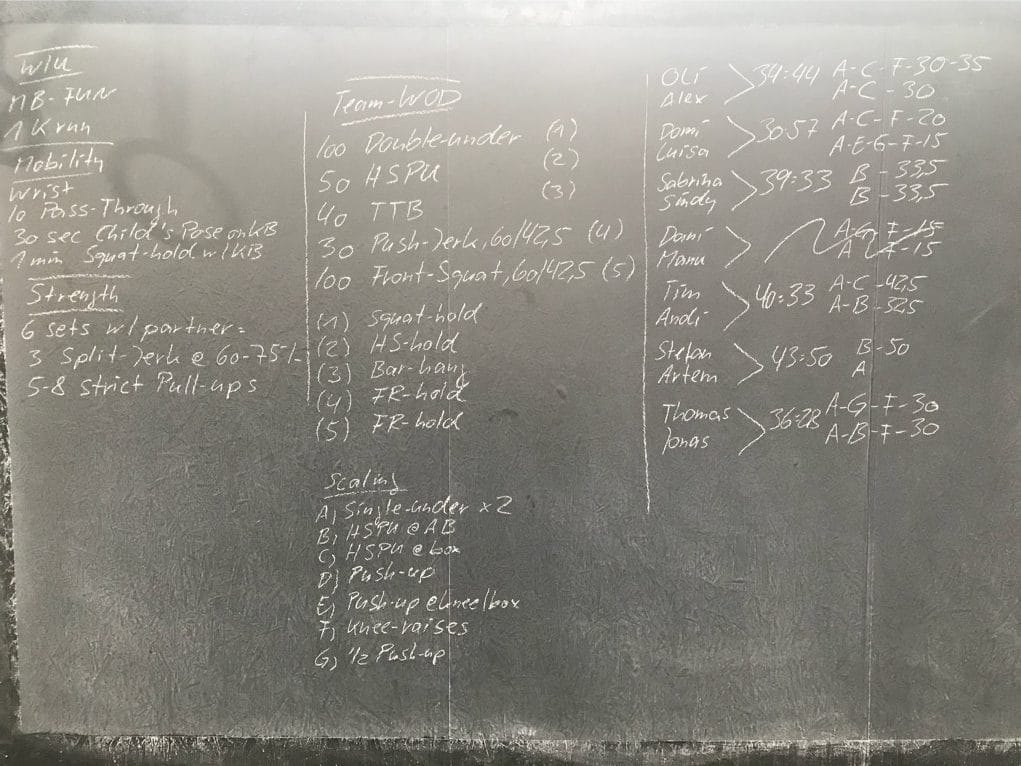 WIU
MB-FUN
1 K run
Mobility
Wrist
10 Pass-Through
30 sec Child's Pose on KB
1 min Squat-hold w/ KB
Strength
6 sets w/ partner:
3 Split-Jerk @ 60-75%
5-8 strict Pull-ups
Team-WOD
100 Double-under (1)
50 HSPU (2)
40 TTB (3)
30 Push-Jerk, 60/42,5 (4)
100 Front-Squat, 60/42,5 (5)
(1) Squat-hold
(2) HS-hold
(3) Bar-hang
(4) FR-hold
(5) FR-hold
Scaling
A) Single-under x2
B) HSPU @ AB
C) HSPU @ box
D) Push-up
E) Push-up @ knee/box
F) Knee-raises
G) 1/2 Push-up
Oli A-C-F-30-35
34:44
Alex A-C-30
Domi A-C-F-20
30:57
Luisa A-E-G-F-15
Sabrina B-33,5
39:33
Sindy B-33,5
Dani A-G-F-15
Manu A F-15
Tim A-C-42,5
40:33
Andi A-B-32,5
Stefan B-50
43:50
Artem A
Thomas A-G-F-30
36:28
Jonas A-B-F-30